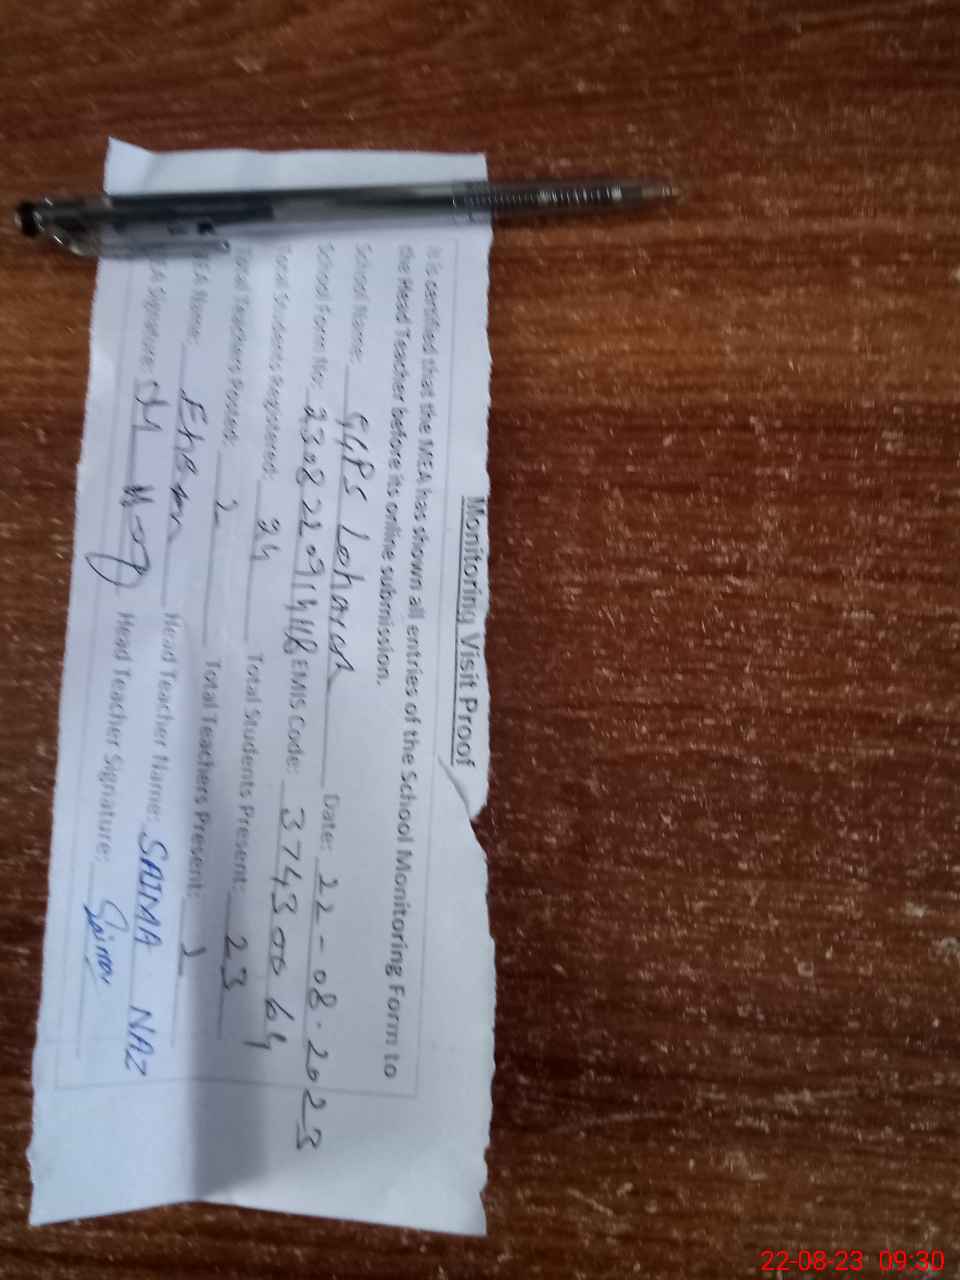 Monitoring Visit Proof
It is certified that the MEA has shown all entries of the School Monitoring Form to
the Head Teacher before its online submission.
School Name: GGPS Loharan Date: 22-08-2023
School Form No: EMIS Code: 37430064
Total Students Registered: 24 Total Students Present: 23
Total Teachers Posted: 2 Total Teachers Present:
MEA Name: Ehsan Head Teacher Name: SAIMA NAZ
MEA Signature: Head Teacher Signature: Saima
22-08-23 09:30